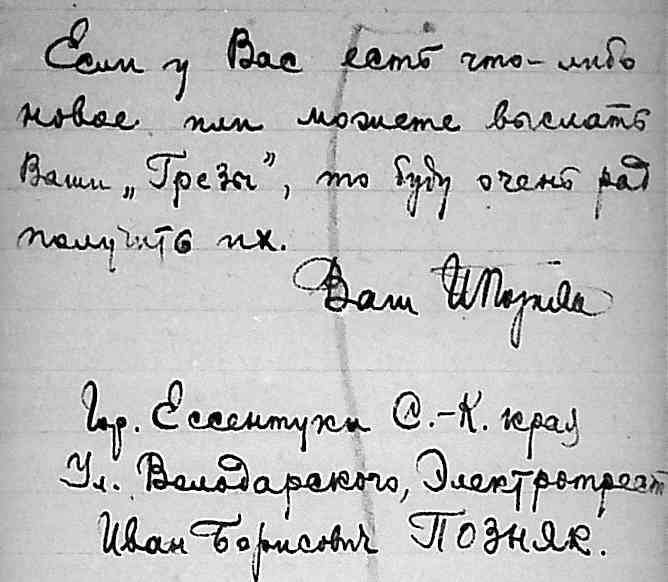 Если у Вас есть что-либо
новое или можете выслать
Ваши „Грезы”, то буду очень рад
получить их.
Ваш ИПозняк
Гор. Ессентуки С.-К. края
Ул. Володарского, Электротрест
Иван Борисович ПОЗНЯК.